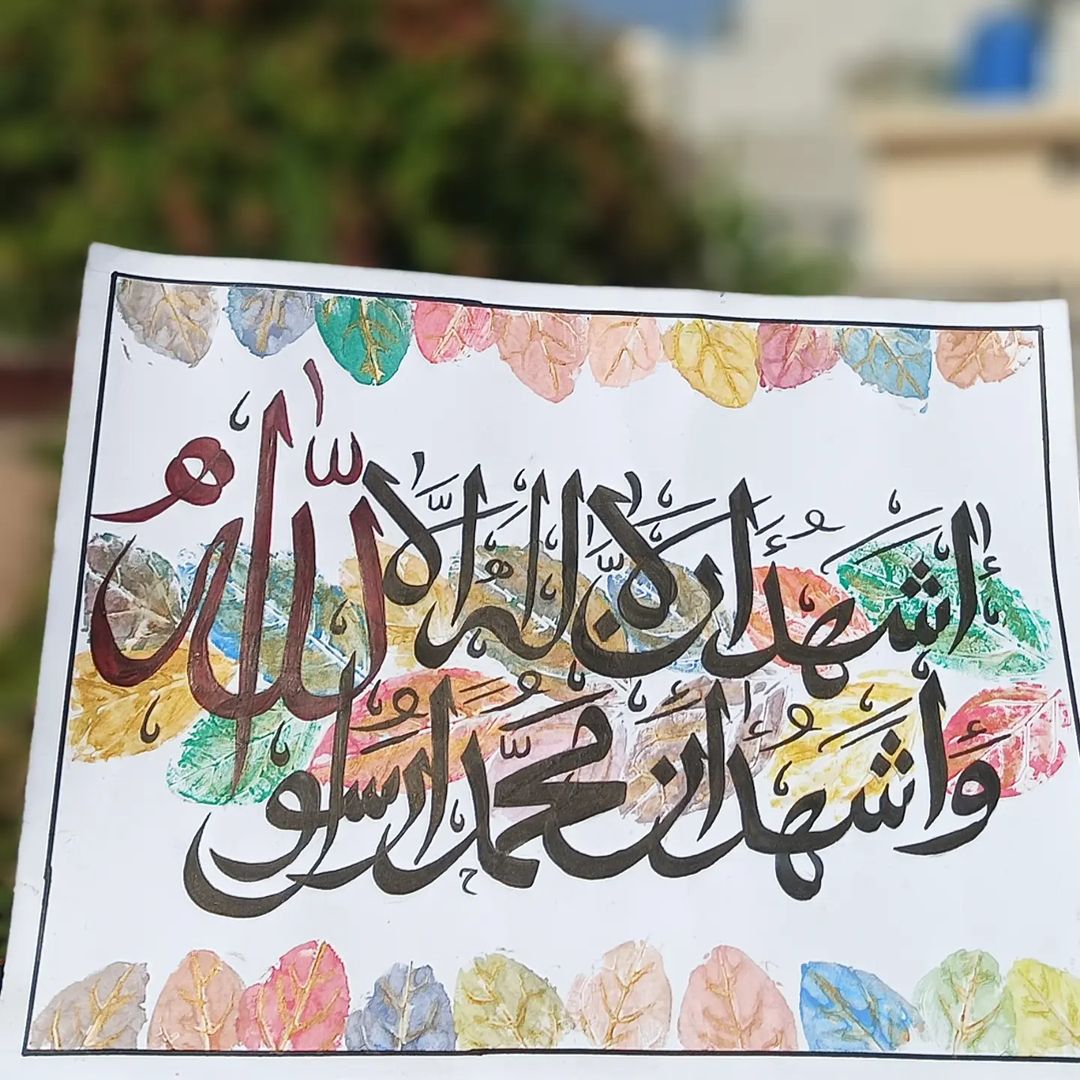 أَشْهَدُ أَنْ لَّا إِلٰهَ إِلَّا اللّٰهُ
وَأَشْهَدُ أَنَّ مُحَمَّدًا رَسُولُ